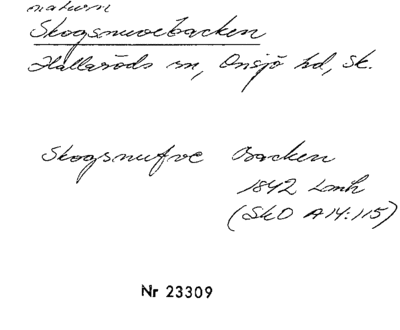 naturn
Skogsnuvebacken
Hallaröds sn, Onsjö hd, Sk.
Skogsnufve Backen
1842 Lmh
(SkO A14:115)
Nr 23309